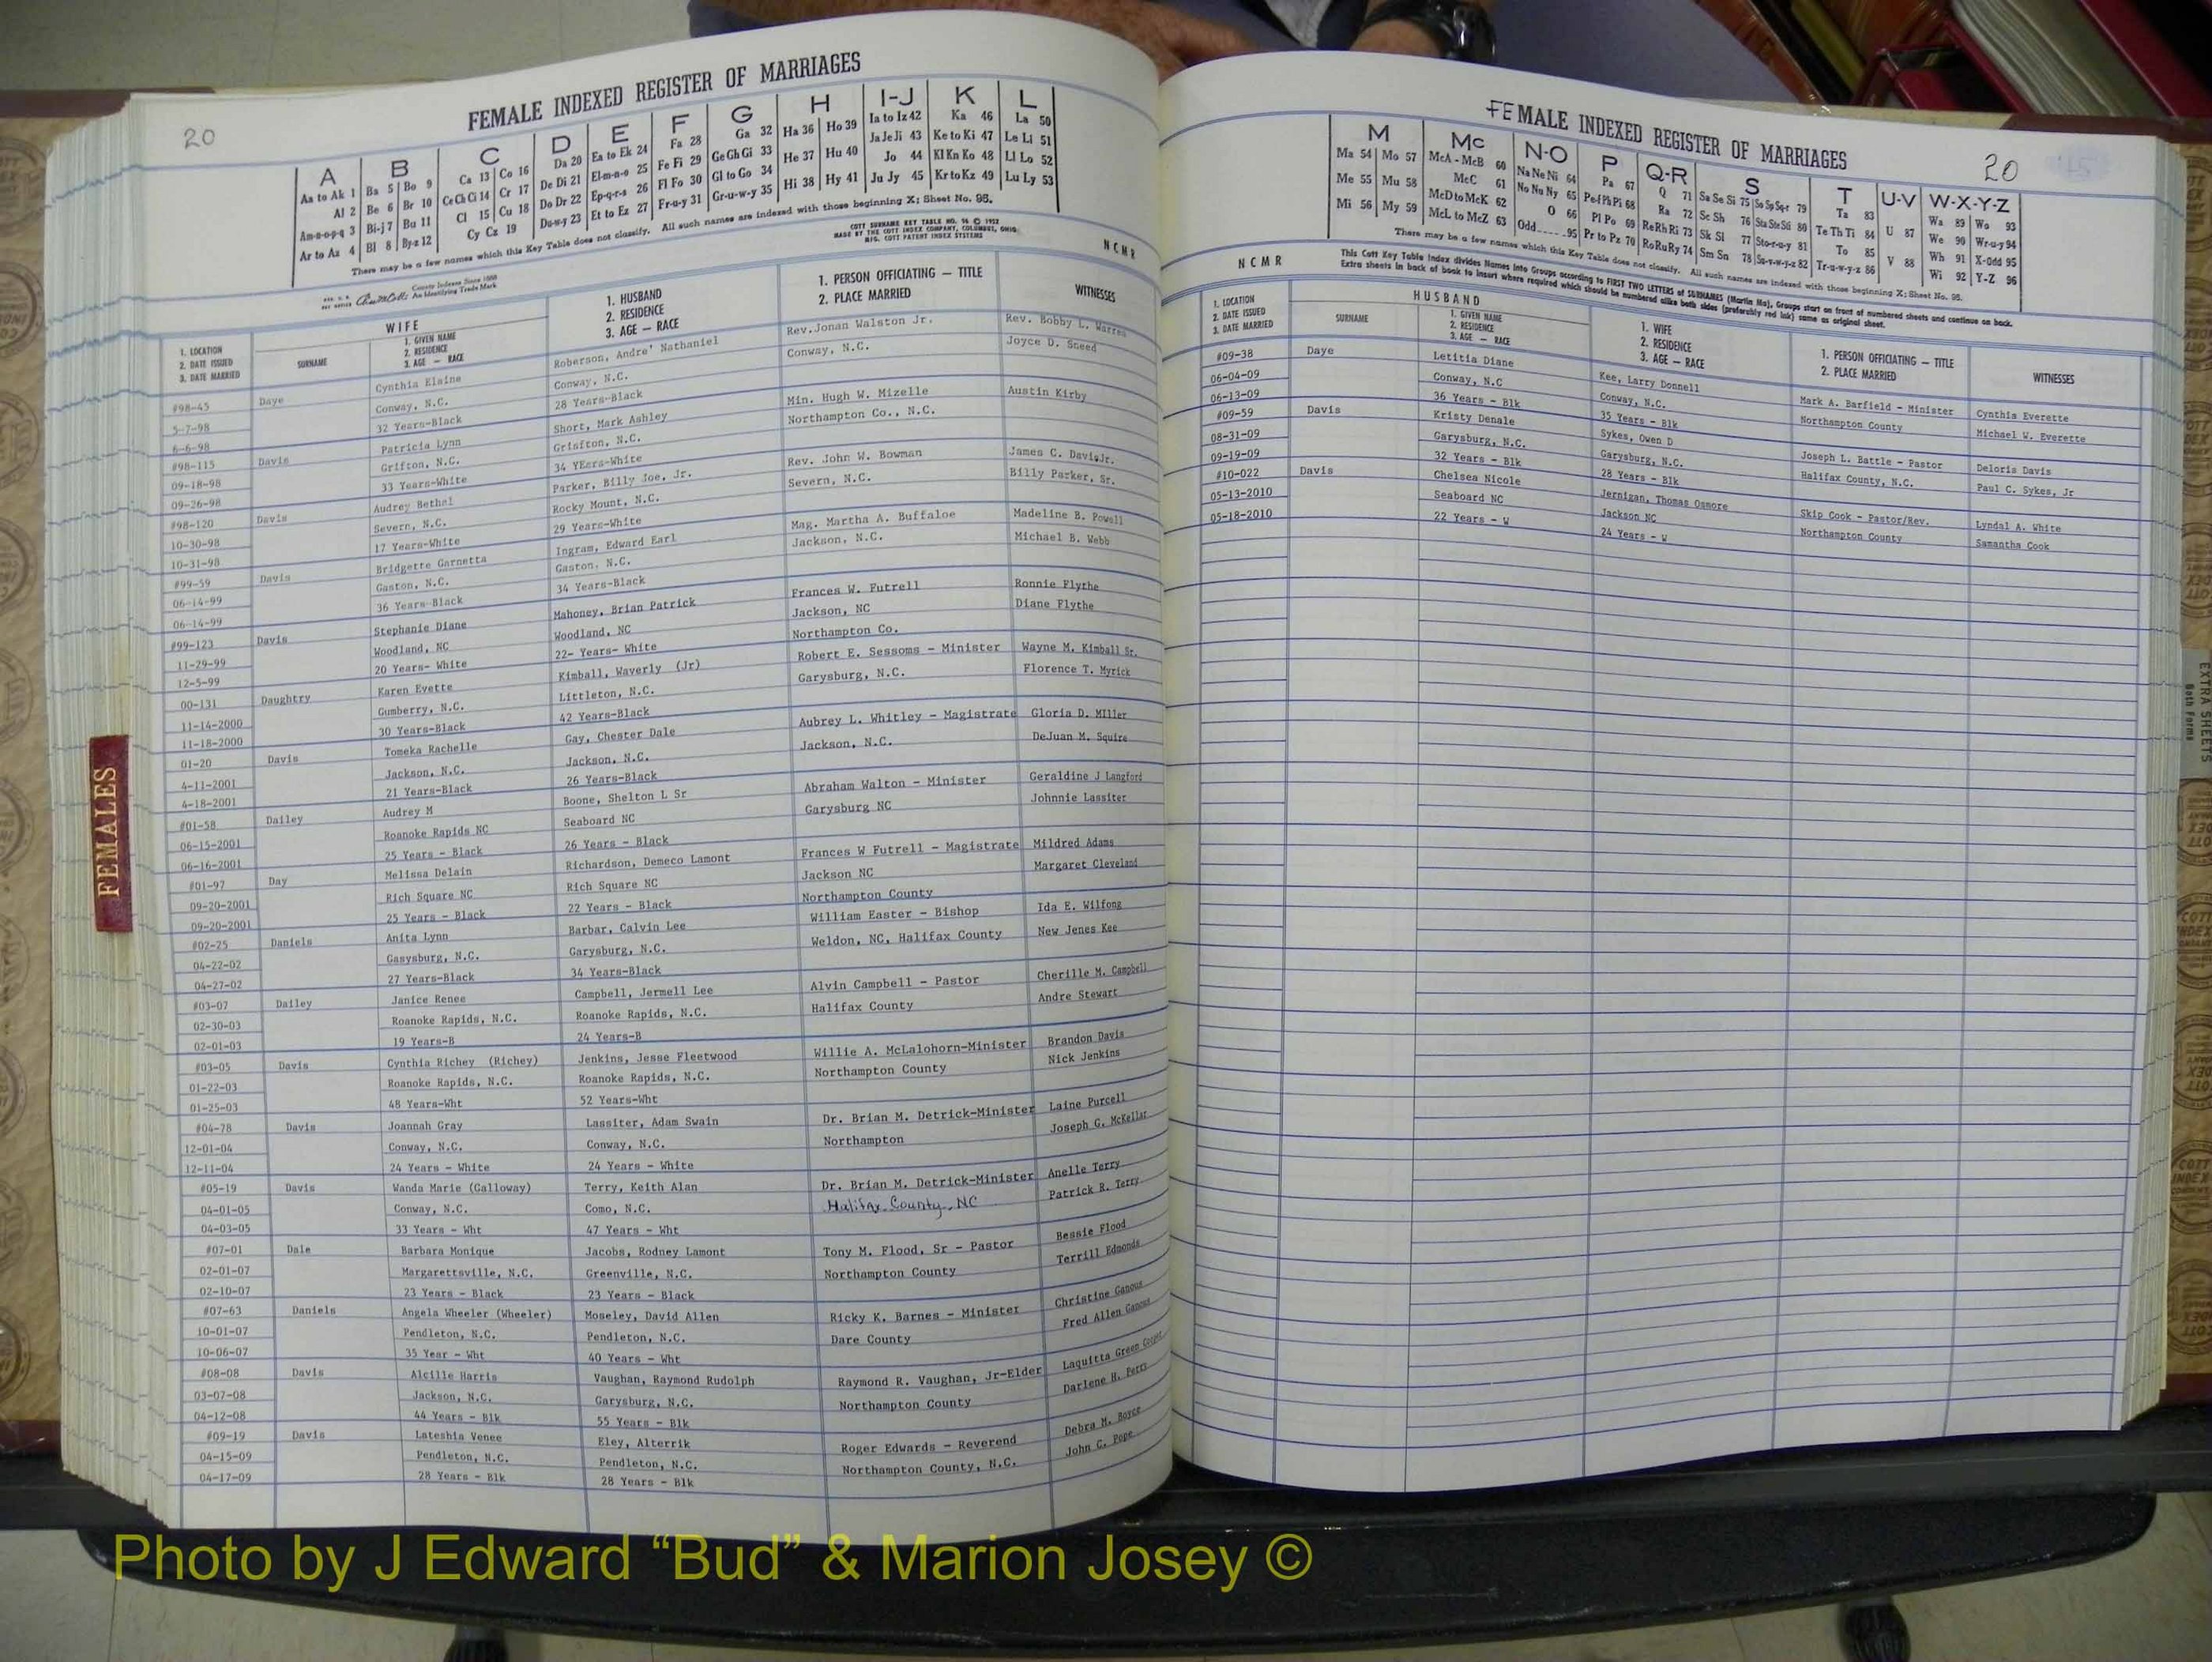 20
FEMALE INDEXED REGISTER OF MARRIAGES
A B C D E F G H I-J K L
Aa to Ak 1 Ba 5 Bo 9 Ca 13 Co 16 Da 20 Ea to Ek 24 Fa 28 Ga 32 Ha 36 Ho 39 Ia to Iz 42 Ka 46 La 50
Al 2 Be 6 Br 10 Ce Ch Ci 14 Cr 17 De Di 21 El-m-n-o 25 Fe Fi 29 Ge Gh Gi 33 He 37 Hu 40 Ja Je Ji 43 Ke to Ki 47 Le Li 51
Am-n-o-p-q 3 Bi-j 7 Bu 11 Cl 15 Cu 18 Do Dr 22 Ep-q-r-s 26 Fl Fo 30 Gl to Go 34 Hi 38 Hy 41 Jo 44 Kl Kn Ko 48 Ll Lo 52
Ar to Az 4 Bl 8 By-z 12 Cy Cz 19 Du-w-y 23 Et to Ez 27 Fr-u-y 31 Gr-u-w-y 35 Ju Jy 45 Kr to Kz 49 Lu Ly 53
There may be a few names which this Key Table does not classify. All such names are indexed with those beginning X; Sheet No. 95.
COTT SURNAME KEY TABLE NO. 96 © 1952
MADE BY THE COTT INDEX COMPANY, COLUMBUS, OHIO
MFG. COTT PATENT INDEX SYSTEMS
NCMR
County Indexes Since 1888
An Identifying Trade Mark
1. LOCATION
2. DATE ISSUED
3. DATE MARRIED
WIFE
SURNAME
1. GIVEN NAME
2. RESIDENCE
3. AGE — RACE
1. HUSBAND
2. RESIDENCE
3. AGE — RACE
1. PERSON OFFICIATING — TITLE
2. PLACE MARRIED
WITNESSES
#98-45 Daye Cynthia Elaine Roberson, Andre' Nathaniel Rev. Jonan Walston Jr. Rev. Bobby L. Warren
5-7-98 Conway, N.C. Conway, N.C. Conway, N.C. Joyce D. Sneed
6-6-98 32 Years-Black 28 Years-Black
#98-115 Davis Patricia Lynn Short, Mark Ashley Min. Hugh W. Mizelle Austin Kirby
09-18-98 Grifton, N.C. Grifton, N.C. Northampton Co., N.C.
09-26-98 33 Years-White 34 YEers-White
#98-120 Davis Audrey Bethel Parker, Billy Joe, Jr. Rev. John W. Bowman James C. Davis,Jr.
10-30-98 Severn, N.C. Rocky Mount, N.C. Severn, N.C. Billy Parker, Sr.
10-31-98 17 Years-White 29 Years-White
#99-59 Davis Bridgette Garnetta Ingram, Edward Earl Mag. Martha A. Buffaloe Madeline B. Powell
06-14-99 Gaston, N.C. Gaston, N.C. Jackson, N.C. Michael B. Webb
06-14-99 36 Years-Black 34 Years-Black
#99-123 Davis Stephanie Diane Mahoney, Brian Patrick Frances W. Futrell Ronnie Flythe
11-29-99 Woodland, NC Woodland, NC Jackson, NC Diane Flythe
12-5-99 20 Years- White 22- Years- White Northampton Co.
00-131 Daughtry Karen Evette Kimball, Waverly (Jr) Robert E. Sessoms - Minister Wayne M. Kimball Sr.
11-14-2000 Gumberry, N.C. Littleton, N.C. Garysburg, N.C. Florence T. Myrick
11-18-2000 30 Years-Black 42 Years-Black
01-20 Davis Tomeka Rachelle Gay, Chester Dale Aubrey L. Whitley - Magistrate Gloria D. MIller
4-11-2001 Jackson, N.C. Jackson, N.C. Jackson, N.C. DeJuan M. Squire
4-18-2001 21 Years-Black 26 Years-Black
#01-58 Dailey Audrey M Boone, Shelton L Sr Abraham Walton - Minister Geraldine J Langford
06-15-2001 Roanoke Rapids NC Seaboard NC Garysburg NC Johnnie Lassiter
06-16-2001 25 Years - Black 26 Years - Black
#01-97 Day Melissa Delain Richardson, Demeco Lamont Frances W Futrell - Magistrate Mildred Adams
09-20-2001 Rich Square NC Rich Square NC Jackson NC Margaret Cleveland
09-20-2001 25 Years - Black 22 Years - Black Northampton County
#02-25 Daniels Anita Lynn Barbar, Calvin Lee William Easter - Bishop Ida E. Wilfong
04-22-02 Gasysburg, N.C. Garysburg, N.C. Weldon, NC, Halifax County New Jenes Kee
04-27-02 27 Years-Black 34 Years-Black
#03-07 Dailey Janice Renee Campbell, Jermell Lee Alvin Campbell - Pastor Cherille M. Campbell
02-30-03 Roanoke Rapids, N.C. Roanoke Rapids, N.C. Halifax County Andre Stewart
02-01-03 19 Years-B 24 Years-B
#03-05 Davis Cynthia Richey (Richey) Jenkins, Jesse Fleetwood Willie A. McLalohorn-Minister Brandon Davis
01-22-03 Roanoke Rapids, N.C. Roanoke Rapids, N.C. Northampton County Nick Jenkins
01-25-03 48 Years-Wht 52 Years-Wht
#04-78 Davis Joannah Gray Lassiter, Adam Swain Dr. Brian M. Detrick-Minister Laine Purcell
12-01-04 Conway, N.C. Conway, N.C. Northampton Joseph G. McKellar
12-11-04 24 Years - White 24 Years - White
#05-19 Davis Wanda Marie (Galloway) Terry, Keith Alan Dr. Brian M. Detrick-Minister Anelle Terry
04-01-05 Conway, N.C. Como, N.C. Halifax County, NC Patrick R. Terry
04-03-05 33 Years - Wht 47 Years - Wht
#07-01 Dale Barbara Monique Jacobs, Rodney Lamont Tony M. Flood, Sr - Pastor Bessie Flood
02-01-07 Margarettsville, N.C. Greenville, N.C. Northampton County Terrill Edmonds
02-10-07 23 Years - Black 23 Years - Black
#07-63 Daniels Angela Wheeler (Wheeler) Moseley, David Allen Ricky K. Barnes - Minister Christine Ganous
10-01-07 Pendleton, N.C. Pendleton, N.C. Dare County Fred Allen Ganous
10-06-07 35 Year - Wht 40 Years - Wht
#08-08 Davis Alcille Harris Vaughan, Raymond Rudolph Raymond R. Vaughan, Jr-Elder Laquitta Green Cooper
03-07-08 Jackson, N.C. Garysburg, N.C. Northampton County Darlene H. Perry
04-12-08 44 Years - Blk 55 Years - Blk
#09-19 Davis Lateshia Venee Eley, Alterrik Roger Edwards - Reverend Debra M. Boyce
04-15-09 Pendleton, N.C. Pendleton, N.C. Northampton County, N.C. John C. Pope
04-17-09 28 Years - Blk 28 Years - Blk
FEMALES
FEMALE INDEXED REGISTER OF MARRIAGES
20
M Mc N-O P Q-R S T U-V W-X-Y-Z
Ma 54 Mo 57 McA - McB 60 Na Ne Ni 64 Pa 67 Q 71 Sa Se Si 75 So Sp Sq-r 79 Ta 83 U 87 Wa 89 Wo 93
Me 55 Mu 58 McC 61 No Nu Ny 65 Pe-f Ph Pi 68 Ra 72 Sc Sh 76 Sta Ste Sti 80 Te Th Ti 84 V 88 We 90 Wr-u-y 94
Mi 56 My 59 McD to McK 62 O 66 Pl Po 69 Re Rh Ri 73 Sk Sl 77 Sto-r-u-y 81 To 85 Wh 91 X-Odd 95
McL to McZ 63 Odd 95 Pr to Pz 70 Ro Ru Ry 74 Sm Sn 78 Su-v-w-y-z 82 Tr-u-w-y-z 86 Wi 92 Y-Z 96
There may be a few names which this Key Table does not classify. All such names are indexed with those beginning X; Sheet No. 95.
NCMR
This Cott Key Table Index divides Names into Groups according to FIRST TWO LETTERS of SURNAMES (Martin Ma). Groups start on front of numbered sheets and continue on back.
Extra sheets in back of book to insert where required which should be numbered alike both sides (preferably red ink) same as original sheet.
1. LOCATION
2. DATE ISSUED
3. DATE MARRIED
HUSBAND
SURNAME
1. GIVEN NAME
2. RESIDENCE
3. AGE — RACE
1. WIFE
2. RESIDENCE
3. AGE — RACE
1. PERSON OFFICIATING — TITLE
2. PLACE MARRIED
WITNESSES
#09-38 Daye Letitia Diane Kee, Larry Donnell Mark A. Barfield - Minister Cynthia Everette
06-04-09 Conway, N.C Conway, N.C. Northampton County Michael W. Everette
06-13-09 36 Years - Blk 35 Years - Blk
#09-59 Davis Kristy Denale Sykes, Owen D Joseph L. Battle - Pastor Deloris Davis
08-31-09 Garysburg, N.C. Garysburg, N.C. Halifax County, N.C. Paul C. Sykes, Jr
09-19-09 32 Years - Blk 28 Years - Blk
#10-022 Davis Chelsea Nicole Jernigan, Thomas Osmore Skip Cook - Pastor/Rev. Lyndal A. White
05-13-2010 Seaboard NC Jackson NC Northampton County Samantha Cook
05-18-2010 22 Years - W 24 Years - W
EXTRA SHEETS
Both Forms
Photo by J Edward “Bud” & Marion Josey ©